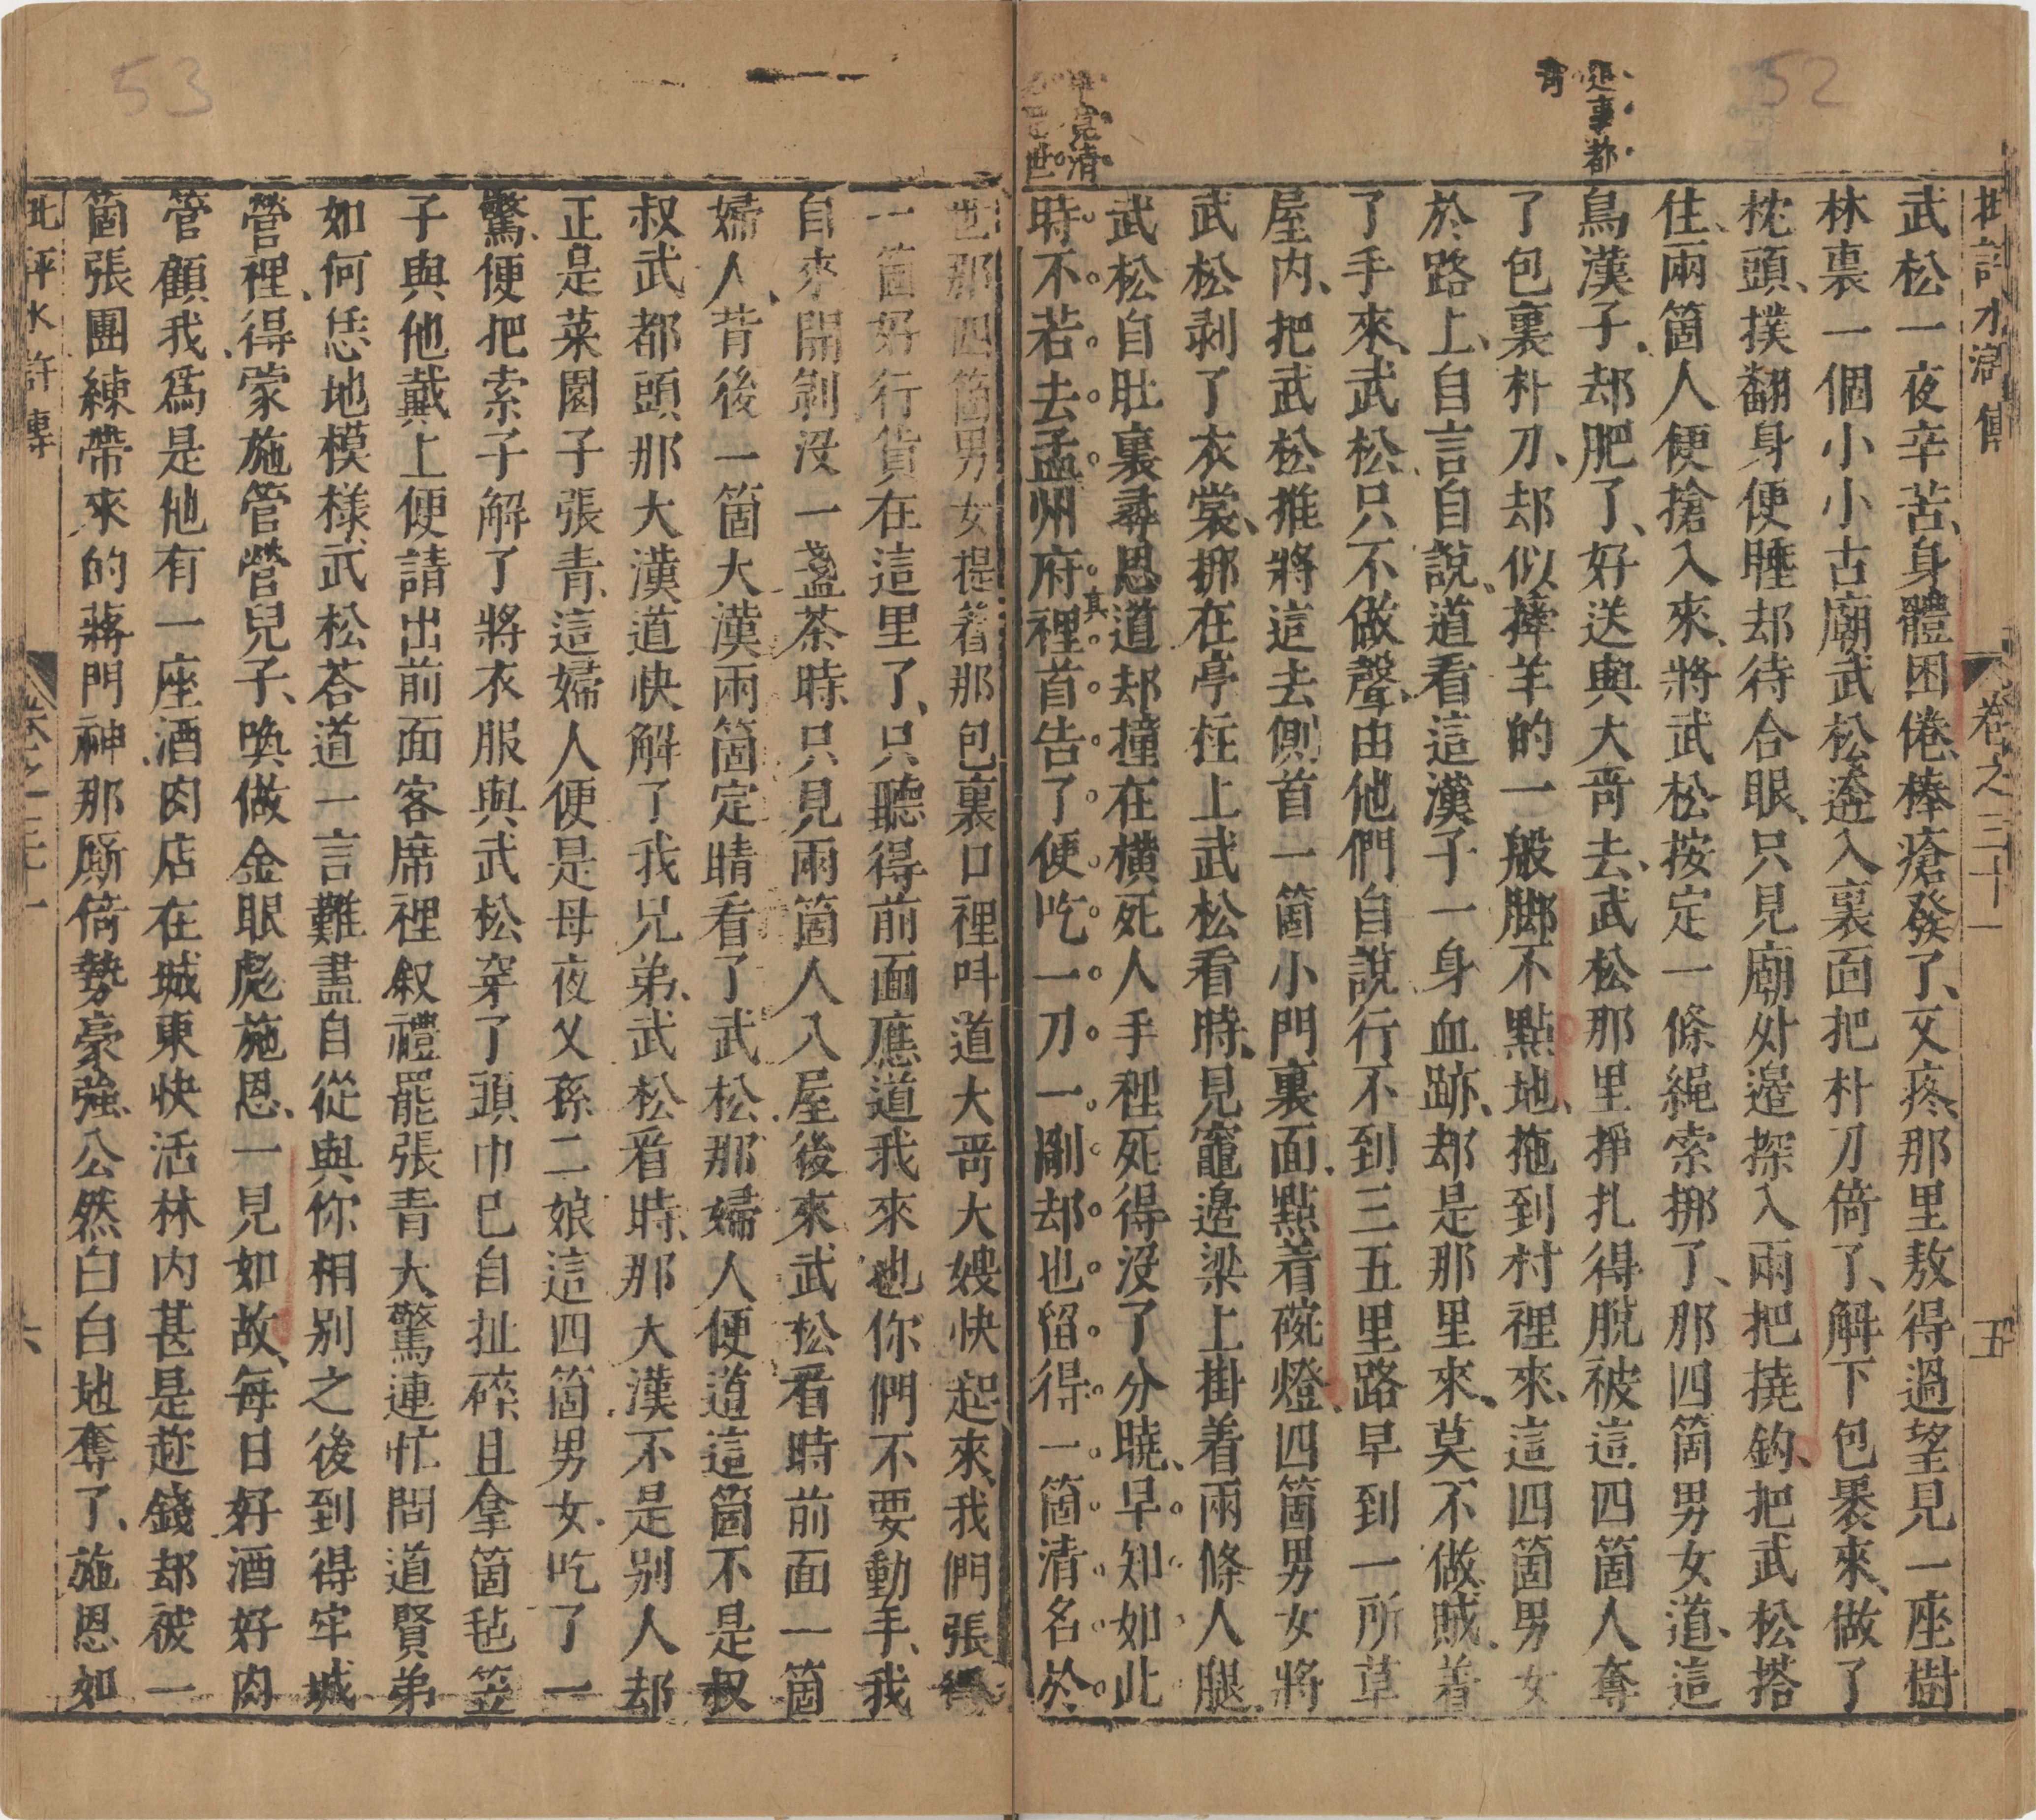 52
這事都
肯
卷之三十一
五
武松一夜辛苦身體困倦棒瘡發了又疼那里敖得過望見一座樹
林裏一個小小古廟武松逩入裏面把朴刀倚了解下包裹來做了
枕頭撲翻身便睡却待合眼只見廟外邉探入兩把撓鈎把武松搭
住兩箇人便搶入來將武松按定一條繩索挷了那四箇男女道這
鳥漢子却肥了好送與大哥去武松那里掙扎得脫被這四箇人奪
了包裹朴刀却似捧羊的一般脚不點地拖到村裡來這四箇男女
於路上自言自說道看這漢子一身血跡却是那里來莫不做賊着
了手來武松只不做聲由他們自說行不到三五里路早到一所草
屋内把武松推將這去側首一箇小門裏面點着碗燈四箇男女將
武松剥了衣裳挷在亭柱上武松看時見竈邉梁上掛着兩條人腿
武松自肚裏尋思道却撞在橫死人手裡死得没了分曉早知如此
真
時不若去孟州府裡首告了便吃一刀一剮却也留得一箇清名於
53
世那四箇男女提着那包裹口裡呌道大哥大嫂快起來我們張得
一箇好行貨在這里了只聽得前面應道我來也你們不要動手我
自來開剝没一盞茶時只見兩箇人入屋後來武松看時前面一箇
婦人背後一箇大漢兩箇定睛看了武松那婦人便道這箇不是叔
叔武都頭那大漢道快解了我兄弟武松看時那大漢不是别人却
正是菜園子張青這婦人便是母夜乂孫二娘這四箇男女吃了一
驚便把索子解了將衣服與武松穿了頭巾已自扯碎且拿箇毡笠
子與他戴上便請出前面客席裡叙禮罷張青大驚連忙問道賢弟
如何恁地模樣武松荅道一言難盡自從與你相别之後到得牢城
營裡得蒙施管營兒子喚做金眼彪施恩一見如故每日好酒好肉
管顧我爲是他有一座酒肉店在城東快活林内甚是趂錢却被一
箇張團練帶來的蔣門神那厮倚勢豪強公然白白地奪了施恩如
批評水滸傳
六